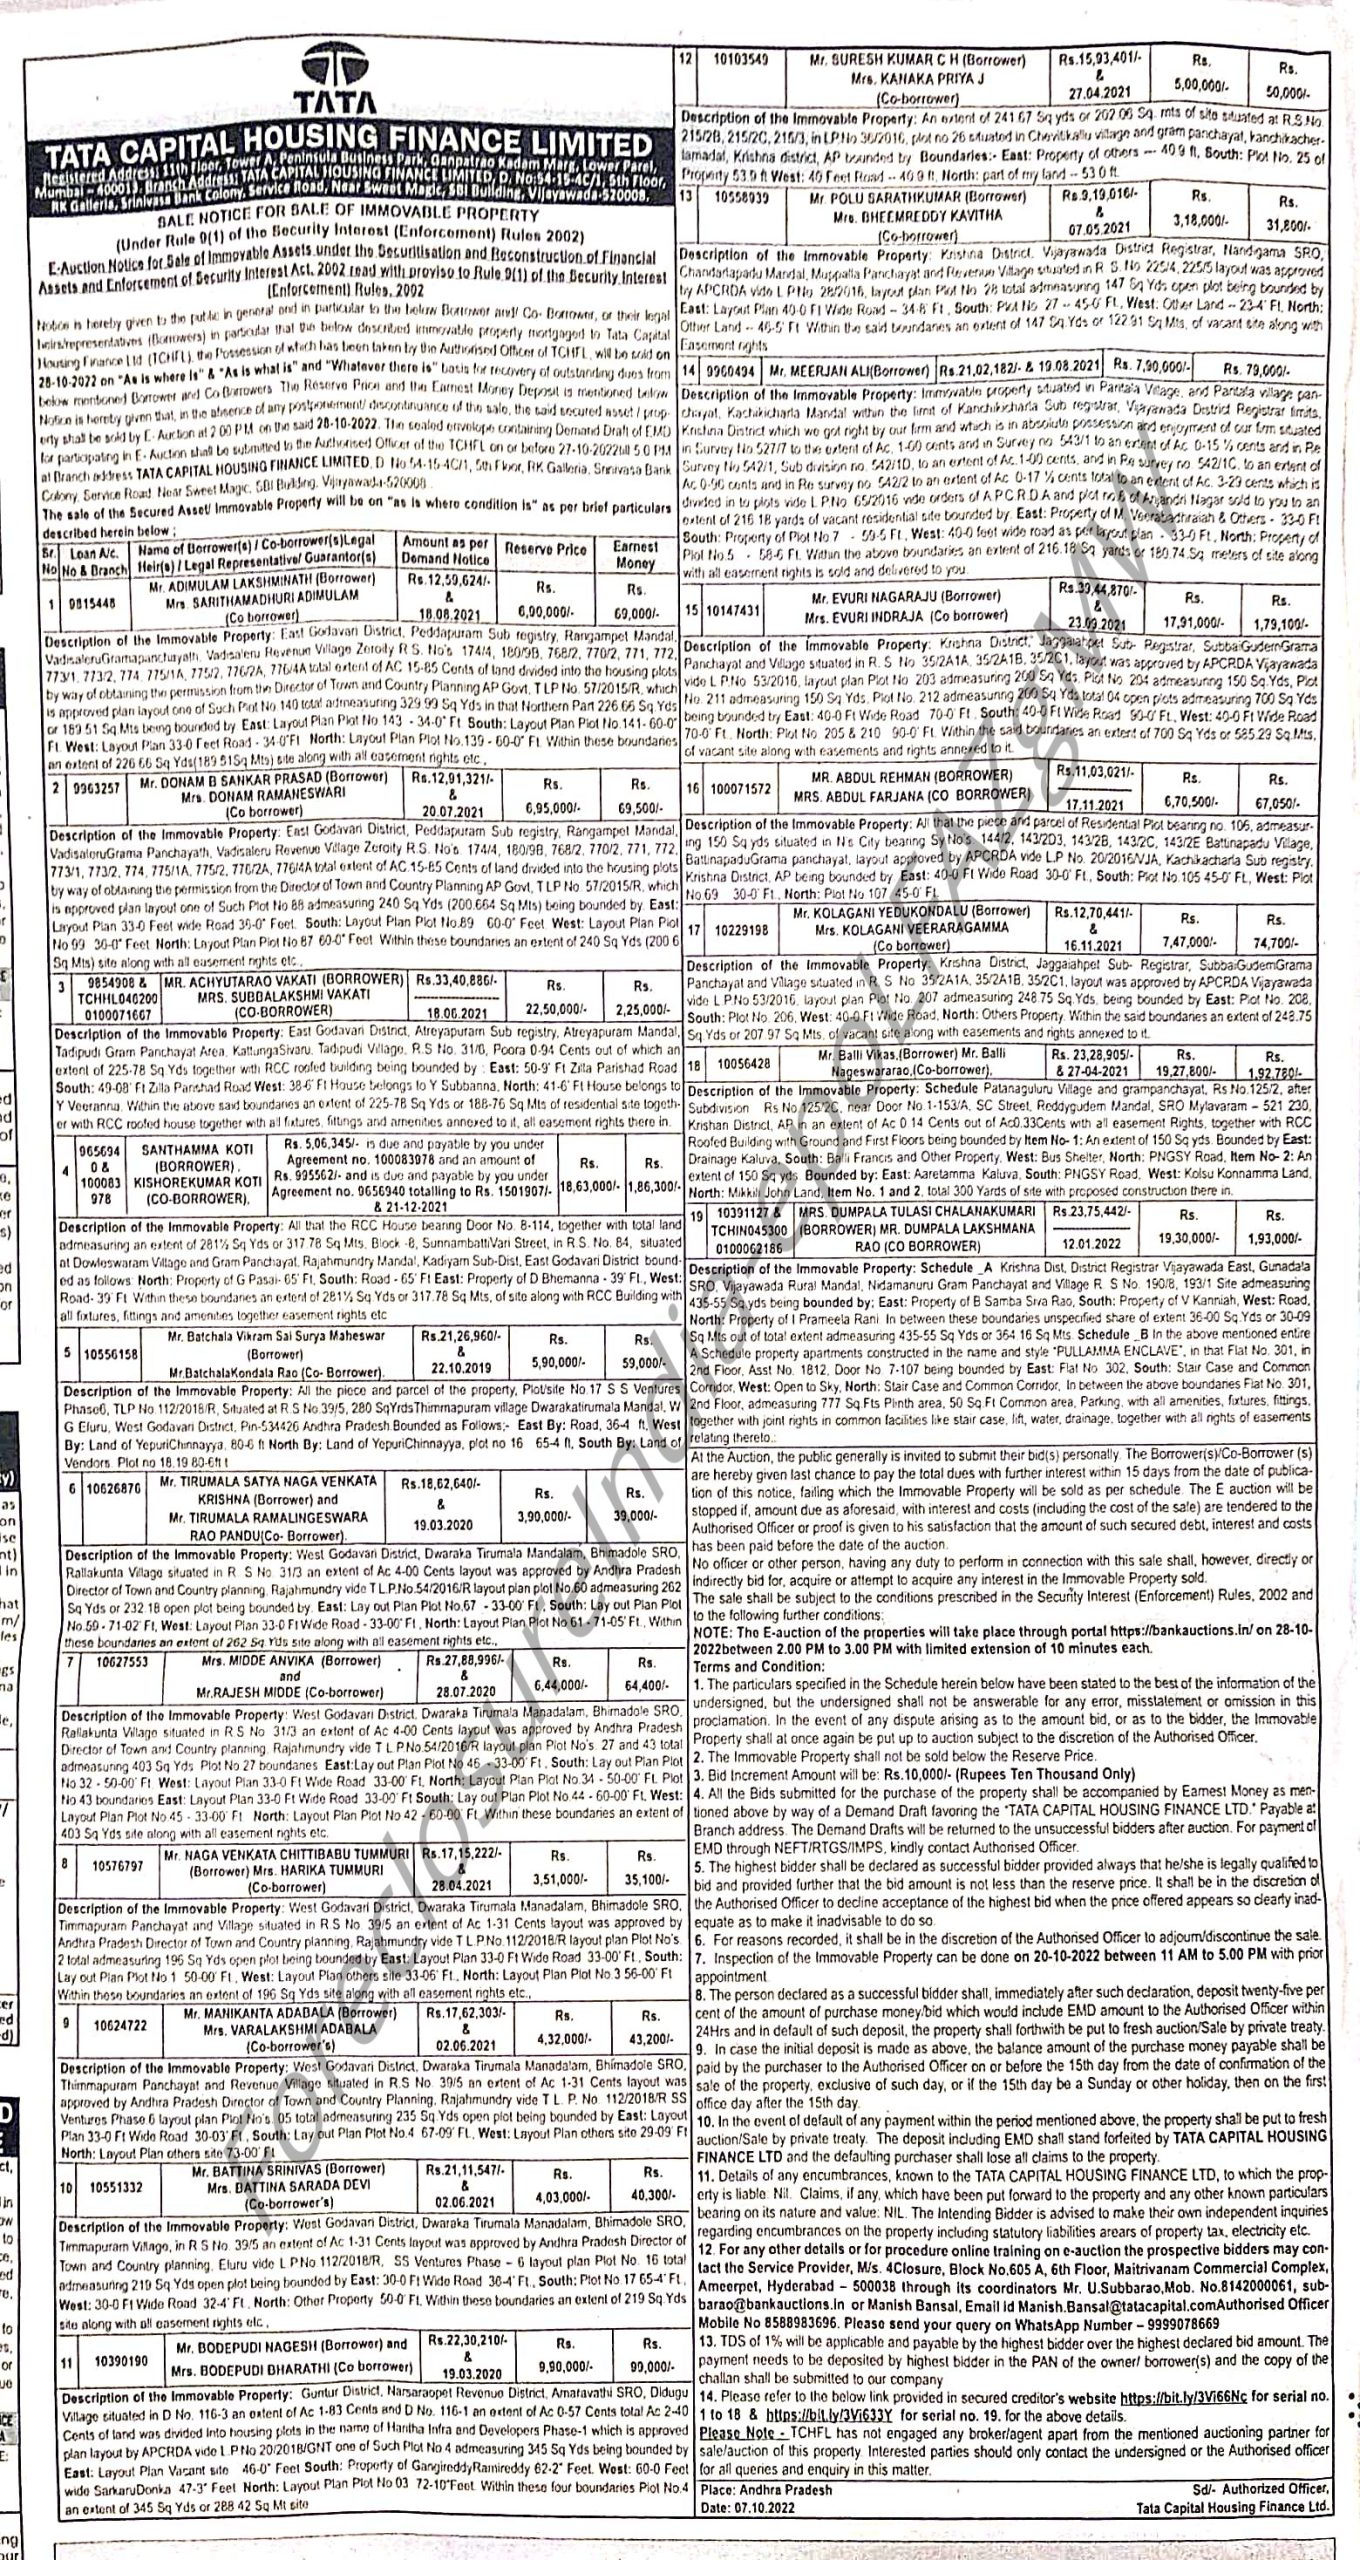 TATA
TATA CAPITAL HOUSING FINANCE LIMITED
Registered Address 11th Floor, Tower A, Peninsula Business Park, Ganpatrao Kadam Marg, Lower Parel,
Mumbai – 400013. Branch Address TATA CAPITAL HOUSING FINANCE LIMITED, D. No.54-15-4C/1, 5th Floor,
RK Galleria, Srinivasa Bank Colony, Service Road, Near Sweet Magic, SBI Building, Vijayawada-520008.
SALE NOTICE FOR SALE OF IMMOVABLE PROPERTY
(Under Rule 9(1) of the Security Interest (Enforcement) Rules 2002)
E-Auction Notice for Sale of Immovable Assets under the Securitisation and Reconstruction of Financial
Assets and Enforcement of Security Interest Act, 2002 read with proviso to Rule 9(1) of the Security Interest
(Enforcement) Rules, 2002
Notice is hereby given to the public in general and in particular to the below Borrower and/ Co- Borrower, or their legal
heirs/representatives (Borrowers) in particular that the below described immovable property mortgaged to Tata Capital
Housing Finance Ltd (TCHFL), the Possession of which has been taken by the Authorised Officer of TCHFL, will be sold on
28-10-2022 on "As is where is" & "As is what is" and "Whatever there is" basis for recovery of outstanding dues from
below mentioned Borrower and Co Borrowers The Reserve Price and the Earnest Money Deposit is mentioned below
Notice is hereby given that, in the absence of any postponement/ discontinuance of the sale, the said secured asset / prop-
erty shall be sold by E- Auction at 2.00 P.M. on the said 28-10-2022. The sealed envelope containing Demand Draft of EMD
for participating in E- Auction shall be submitted to the Authorised Officer of the TCHFL on or before 27-10-2022till 5.0 PM
at Branch address TATA CAPITAL HOUSING FINANCE LIMITED, D No 54-15-4C/1, 5th Floor, RK Galleria, Srinivasa Bank
Colony, Service Road, Near Sweet Magic, SBI Building, Vijayawada-520008.
The sale of the Secured Asset/ Immovable Property will be on "as is where condition is" as per brief particulars
described herein below ;
Sr. No Loan A/c. No & Branch Name of Borrower(s) / Co-borrower(s)Legal Heir(s) / Legal Representative/ Guarantor(s) Amount as per Demand Notice Reserve Price Earnest Money
1 9815448 Mr. ADIMULAM LAKSHMINATH (Borrower) Mrs. SARITHAMADHURI ADIMULAM (Co borrower) Rs.12,59,624/- & 18.08.2021 Rs. 6,90,000/- Rs. 69,000/-
Description of the Immovable Property: East Godavari District, Peddapuram Sub registry, Rangampet Mandal,
VadisaleruGramapanchayath, Vadisaleru Revenue Village Zeroity R.S. No's 174/4, 180/9B, 768/2, 770/2, 771, 772,
773/1, 773/2, 774, 775/1A, 775/2, 776/2A, 776/4A total extent of AC 15-85 Cents of land divided into the housing plots
by way of obtaining the permission from the Director of Town and Country Planning AP Govt, TLP No. 57/2015/R, which
is approved plan layout one of Such Plot No 140 total admeasuring 329.99 Sq Yds in that Northern Part 226.66 Sq.Yds
or 189.51 Sq Mts being bounded by East: Layout Plan Plot No 143 - 34-0" Ft South: Layout Plan Plot No.141- 60-0"
Ft. West: Layout Plan 33-0 Feet Road - 34-0"Ft North: Layout Plan Plot No.139 - 60-0" Ft. Within these boundaries
an extent of 226.66 Sq Yds(189.51Sq Mts) site along with all easement rights etc.,
2 9963257 Mr. DONAM B SANKAR PRASAD (Borrower) Mrs. DONAM RAMANESWARI (Co borrower) Rs.12,91,321/- & 20.07.2021 Rs. 6,95,000/- Rs. 69,500/-
Description of the Immovable Property: East Godavari District, Peddapuram Sub registry, Rangampet Mandal,
VadisaleruGrama Panchayath, Vadisaleru Revenue Village Zeroity R.S. No's 174/4, 180/9B, 768/2, 770/2, 771, 772,
773/1, 773/2, 774, 775/1A, 775/2, 776/2A, 776/4A total extent of AC 15-85 Cents of land divided into the housing plots
by way of obtaining the permission from the Director of Town and Country Planning AP Govt, TLP No 57/2015/R, which
is approved plan layout one of Such Plot No 88 admeasuring 240 Sq Yds (200.664 Sq Mts) being bounded by. East:
Layout Plan 33-0 Feet wide Road 36-0" Feet. South: Layout Plan Plot No.89 60-0" Feet. West: Layout Plan Plot
No 99 36-0" Feet North: Layout Plan Plot No 87 60-0" Feet Within these boundaries an extent of 240 Sq Yds (200.6
Sq Mts) site along with all easement rights etc.,
3 9854908 & TCHHL0402000100071667 MR. ACHYUTARAO VAKATI (BORROWER) MRS. SUBBALAKSHMI VAKATI (CO-BORROWER) Rs.33,40,886/- 18.06.2021 Rs. 22,50,000/- Rs. 2,25,000/-
Description of the Immovable Property: East Godavari District, Atreyapuram Sub registry, Atreyapuram Mandal,
Tadipudi Gram Panchayat Area, KattungaSivaru, Tadipudi Village, R.S No. 31/6, Poora 0-94 Cents out of which an
extent of 225-78 Sq Yds together with RCC roofed building being bounded by : East: 50-9' Ft Zilla Parishad Road
South: 49-08' Ft Zilla Parishad Road West: 38-6' Ft House belongs to Y Subbanna, North: 41-6' Ft House belongs to
Y Veeranna, Within the above said boundaries an extent of 225-78 Sq Yds or 188-76 Sq Mts of residential site togeth-
er with RCC roofed house together with all fixtures, fittings and amenities annexed to it, all easement rights there in.
4 9656940 & 100083978 SANTHAMMA KOTI (BORROWER), KISHOREKUMAR KOTI (CO-BORROWER), Rs. 5,06,345/- is due and payable by you under Agreement no. 100083978 and an amount of Rs. 995562/- and is due and payable by you under Agreement no. 9656940 totalling to Rs. 1501907/- & 21-12-2021 Rs. 18,63,000/- Rs. 1,86,300/-
Description of the Immovable Property: All that the RCC House bearing Door No. 8-114, together with total land
admeasuring an extent of 281½ Sq Yds or 317.78 Sq Mts, Block -8, SunnambattiVari Street, in R.S. No. 84, situated
at Dowleswaram Village and Gram Panchayat, Rajahmundry Mandal, Kadiyam Sub-Dist, East Godavari District bound-
ed as follows: North: Property of G Pasai- 65' Ft, South: Road - 65' Ft East: Property of D Bhemanna - 39' Ft, West:
Road- 39' Ft Within these boundaries an extent of 281½ Sq Yds or 317.78 Sq Mts, of site along with RCC Building with
all fixtures, fittings and amenities together easement rights etc
5 10556158 Mr. Batchala Vikram Sai Surya Maheswar (Borrower) Mr.BatchalaKondala Rao (Co- Borrower). Rs.21,26,960/- & 22.10.2019 Rs. 5,90,000/- Rs. 59,000/-
Description of the Immovable Property: All the piece and parcel of the property, Plot/site No.17 S S Ventures
Phase6, TLP No.112/2018/R, Situated at R.S No.39/5, 280 SqYrdsThimmapuram village Dwarakatirumala Mandal, W
G Eluru, West Godavari District, Pin-534426 Andhra Pradesh.Bounded as Follows;- East By: Road, 36-4 ft, West
By: Land of YepuriChinnayya, 80-6 ft North By: Land of YepuriChinnayya, plot no 16 65-4 ft, South By: Land of
Vendors. Plot no 18,19 80-6ft t
6 10626876 Mr. TIRUMALA SATYA NAGA VENKATA KRISHNA (Borrower) and Mr. TIRUMALA RAMALINGESWARA RAO PANDU(Co- Borrower). Rs.18,62,640/- & 19.03.2020 Rs. 3,90,000/- Rs. 39,000/-
Description of the Immovable Property: West Godavari District, Dwaraka Tirumala Mandalam, Bhimadole SRO,
Rallakunta Village situated in R. S No. 31/3 an extent of Ac 4-00 Cents layout was approved by Andhra Pradesh
Director of Town and Country planning, Rajahmundry vide T L.P.No.54/2016/R layout plan plot No.60 admeasuring 262
Sq Yds or 232.18 open plot being bounded by. East: Lay out Plan Plot No.67 - 33-00' Ft, South: Lay out Plan Plot
No.59 - 71-02' Ft, West: Layout Plan 33-0 Ft Wide Road - 33-00' Ft, North: Layout Plan Plot No 61 - 71-05' Ft., Within
these boundaries an extent of 262 Sq.Yds site along with all easement rights etc.,
7 10627553 Mrs. MIDDE ANVIKA (Borrower) and Mr.RAJESH MIDDE (Co-borrower) Rs.27,88,996/- & 28.07.2020 Rs. 6,44,000/- Rs. 64,400/-
Description of the Immovable Property: West Godavari District, Dwaraka Tirumala Manadalam, Bhimadole SRO,
Rallakunta Village situated in R.S No 31/3 an extent of Ac 4-00 Cents layout was approved by Andhra Pradesh
Director of Town and Country planning, Rajahmundry vide T L P.No.54/2016/R layout plan Plot No's. 27 and 43 total
admeasuring 403 Sq Yds Plot No 27 boundaries East:Lay out Plan Plot No 46 - 33-00' Ft, South: Lay out Plan Plot
No 32 - 50-00' Ft West: Layout Plan 33-0 Ft Wide Road 33-00' Ft, North: Layout Plan Plot No.34 - 50-00' Ft. Plot
No 43 boundaries East: Layout Plan 33-0 Ft Wide Road 33-00' Ft South: Lay out Plan Plot No.44 - 60-00' Ft. West:
Layout Plan Plot No 45 - 33-00' Ft North: Layout Plan Plot No 42 - 60-00' Ft, Within these boundaries an extent of
403 Sq Yds site along with all easement rights etc.
8 10576797 Mr. NAGA VENKATA CHITTIBABU TUMMURI (Borrower) Mrs. HARIKA TUMMURI (Co-borrower) Rs.17,15,222/- & 28.04.2021 Rs. 3,51,000/- Rs. 35,100/-
Description of the Immovable Property: West Godavari District, Dwaraka Tirumala Manadalam, Bhimadole SRO,
Timmapuram Panchayat and Village situated in R S No. 39/5 an extent of Ac 1-31 Cents layout was approved by
Andhra Pradesh Director of Town and Country planning, Rajahmundry vide T L P.No.112/2018/R layout plan Plot No's.
2 total admeasuring 196 Sq Yds open plot being bounded by East: Layout Plan 33-0 Ft Wide Road 33-00' Ft, South:
Lay out Plan Plot No 1 50-00' Ft, West: Layout Plan others site 33-06' Ft., North: Layout Plan Plot No.3 56-00' Ft
Within these boundaries an extent of 196 Sq Yds site along with all easement rights etc.,
9 10624722 Mr. MANIKANTA ADABALA (Borrower) Mrs. VARALAKSHMI ADABALA (Co-borrower's) Rs.17,62,303/- & 02.06.2021 Rs. 4,32,000/- Rs. 43,200/-
Description of the Immovable Property: West Godavari District, Dwaraka Tirumala Manadalam, Bhimadole SRO,
Thimmapuram Panchayat and Revenue Village Situated in R.S No. 39/5 an extent of Ac 1-31 Cents layout was
approved by Andhra Pradesh Director of Town and Country Planning, Rajahmundry vide T L. P. No. 112/2018/R SS
Ventures Phase 6 layout plan Plot No's. 05 total admeasuring 235 Sq.Yds open plot being bounded by East: Layout
Plan 33-0 Ft Wide Road 30-03' Ft, South: Lay out Plan Plot No.4 67-09' Ft, West: Layout Plan others site 29-09' Ft
North: Layout Plan others site 73-00' Ft
10 10551332 Mr. BATTINA SRINIVAS (Borrower) Mrs. BATTINA SARADA DEVI (Co-borrower's) Rs.21,11,547/- & 02.06.2021 Rs. 4,03,000/- Rs. 40,300/-
Description of the Immovable Property: West Godavari District, Dwaraka Tirumala Manadalam, Bhimadole SRO,
Timmapuram Village, in R S No. 39/5 an extent of Ac 1-31 Cents layout was approved by Andhra Pradesh Director of
Town and Country planning, Eluru vide L P.No.112/2018/R, SS Ventures Phase - 6 layout plan Plot No. 16 total
admeasuring 219 Sq Yds open plot being bounded by East: 30-0 Ft Wide Road 36-4' Ft., South: Plot No 17 65-4' Ft.,
West: 30-0 Ft Wide Road 32-4' Ft, North: Other Property 50-0' Ft, Within these boundaries an extent of 219 Sq.Yds
site along with all easement rights etc.,
11 10390190 Mr. BODEPUDI NAGESH (Borrower) and Mrs. BODEPUDI BHARATHI (Co borrower) Rs.22,30,210/- & 19.03.2020 Rs. 9,90,000/- Rs. 99,000/-
Description of the Immovable Property: Guntur District, Narsaraopet Revenue District, Amaravathi SRO, Didugu
Village situated in D No. 116-3 an extent of Ac 1-83 Cents and D No. 116-1 an extent of Ac 0-57 Cents total Ac 2-40
Cents of land was divided into housing plots in the name of Haritha Infra and Developers Phase-1 which is approved
plan layout by APCRDA vide L P No 20/2018/GNT one of Such Plot No 4 admeasuring 345 Sq Yds being bounded by
East: Layout Plan Vacant site 46-0" Feet South: Property of GangireddyRamireddy 62-2" Feet. West: 60-0 Feet
wide SarkaruDonka 47-3" Feet North: Layout Plan Plot No 03 72-10"Feet. Within these four boundaries Plot No.4
an extent of 345 Sq Yds or 288.42 Sq Mt site
12 10103549 Mr. SURESH KUMAR C H (Borrower) Mrs. KANAKA PRIYA J (Co-borrower) Rs.15,93,401/- & 27.04.2021 Rs. 5,00,000/- Rs. 50,000/-
Description of the Immovable Property: An extent of 241.67 Sq yds or 202.06 Sq. mts of site situated at R.S.No.
215/2B, 215/2C, 216/3, in LP.No 36/2016, plot no 26 situated in Chevitikallu village and gram panchayat, kanchikacher-
lamadal, Krishna district, AP bounded by Boundaries:- East: Property of others --- 40.9 ft, South: Plot No. 25 of
Property 53.9 ft West: 40 Feet Road -- 40.9 ft, North: part of my land -- 53.0 ft.
13 10558939 Mr POLU SARATHKUMAR (Borrower) Mrs. BHEEMREDDY KAVITHA (Co-borrower) Rs.9,19,016/- & 07.05.2021 Rs. 3,18,000/- Rs. 31,800/-
Description of the Immovable Property: Krishna District, Vijayawada District Registrar, Nandigama SRO,
Chandarlapadu Mandal, Muppalla Panchayat and Revenue Village situated in R S. No 225/4, 225/5 layout was approved
by APCRDA vide L P.No 28/2016, layout plan Plot No 28 total admeasuring 147 Sq Yds open plot being bounded by
East: Layout Plan 40-0 Ft Wide Road -- 34-8' Ft, South: Plot No 27 -- 45-0' Ft, West: Other Land -- 23-4' Ft, North:
Other Land -- 46-5' Ft Within the said boundaries an extent of 147 Sq.Yds or 122.91 Sq Mts, of vacant site along with
Easement rights
14 9960494 Mr. MEERJAN ALI(Borrower) Rs.21,02,182/- & 19.08.2021 Rs. 7,90,000/- Rs. 79,000/-
Description of the Immovable Property: Immovable property situated in Paritala Village, and Paritala village pan-
chayat, Kachikicharla Mandal within the limit of Kanchikicharla Sub registrar, Vijayawada District Registrar limits,
Krishna District which we got right by our firm and which is in absolute possession and enjoyment of our firm situated
in Survey No 527/7 to the extent of Ac, 1-60 cents and in Survey no. 543/1 to an extent of Ac. 0-15 ½ cents and in Re
Survey No 542/1, Sub division no. 542/1D, to an extent of Ac.1-00 cents, and in Re survey no. 542/1C, to an extent of
Ac 0-96 cents and in Re survey no. 542/2 to an extent of Ac 0-17 ½ cents total to an extent of Ac. 3-29 cents which is
divided in to plots vide L.P.No. 65/2016 vide orders of A.P.C.R.D.A and plot no.6 of Anjandri Nagar sold to you to an
extent of 216.18 yards of vacant residential site bounded by: East: Property of M. Veerabadhraiah & Others - 33-0 Ft
South: Property of Plot No 7 - 59-5 Ft, West: 40-0 feet wide road as per layout plan - 33-0 Ft, North: Property of
Plot No.5 - 58-6 Ft. Within the above boundaries an extent of 216.18 Sq. yards or 180.74 Sq. meters of site along
with all easement rights is sold and delivered to you.
15 10147431 Mr. EVURI NAGARAJU (Borrower) Mrs. EVURI INDRAJA (Co borrower) Rs.39,44,870/- & 23.09.2021 Rs. 17,91,000/- Rs. 1,79,100/-
Description of the Immovable Property: Krishna District, Jaggaiahpet Sub- Registrar, SubbaiGudemGrama
Panchayat and Village situated in R. S. No 35/2A1A, 35/2A1B, 35/2C1, layout was approved by APCRDA Vijayawada
vide L P.No 53/2016, layout plan Plot No 203 admeasuring 200 Sq.Yds, Plot No. 204 admeasuring 150 Sq.Yds, Plot
No. 211 admeasuring 150 Sq. Yds, Plot No. 212 admeasuring 200 Sq Yds total 04 open plots admeasuring 700 Sq Yds
being bounded by East: 40-0 Ft Wide Road 70-0' Ft, South: 40-0 Ft Wide Road 90-0' Ft, West: 40-0 Ft Wide Road
70-0' Ft. North: Plot No. 205 & 210 90-0' Ft. Within the said boundaries an extent of 700 Sq Yds or 585.29 Sq.Mts,
of vacant site along with easements and rights annexed to it.
16 100071572 MR. ABDUL REHMAN (BORROWER) MRS. ABDUL FARJANA (CO BORROWER) Rs.11,03,021/- 17.11.2021 Rs. 6,70,500/- Rs. 67,050/-
Description of the Immovable Property: All that the piece and parcel of Residential Plot bearing no. 106, admeasur-
ing 150 Sq yds situated in N's City bearing Sy No's. 144/2, 143/2D3, 143/2B, 143/2C, 143/2E Battinapadu Village,
BattinapaduGrama panchayat, layout approved by APCRDA vide L.P No. 20/2016/VJA, Kachikacharla Sub registry,
Krishna District, AP being bounded by East: 40-0 Ft Wide Road 30-0' Ft, South: Plot No.105 45-0' Ft, West: Plot
No 69 30-0' Ft., North: Plot No 107 45-0' Ft.
17 10229198 Mr. KOLAGANI YEDUKONDALU (Borrower) Mrs. KOLAGANI VEERARAGAMMA (Co borrower) Rs.12,70,441/- & 16.11.2021 Rs. 7,47,000/- Rs. 74,700/-
Description of the Immovable Property: Krishna District, Jaggaiahpet Sub- Registrar, SubbaiGudemGrama
Panchayat and Village situated in R. S. No 35/2A1A, 35/2A1B, 35/2C1, layout was approved by APCRDA Vijayawada
vide L.P.No 53/2016, layout plan Plot No. 207 admeasuring 248.75 Sq.Yds, being bounded by East: Plot No. 208,
South: Plot No. 206, West: 40-0 Ft Wide Road, North: Others Property. Within the said boundaries an extent of 248.75
Sq Yds or 207.97 Sq Mts, of vacant site along with easements and rights annexed to it.
18 10056428 Mr. Balli Vikas,(Borrower) Mr. Balli Nageswararao,(Co-borrower), Rs. 23,28,905/- & 27-04-2021 Rs. 19,27,800/- Rs. 1,92,780/-
Description of the Immovable Property: Schedule Patanaguluru Village and grampanchayat, Rs.No.125/2, after
Subdivision Rs No.125/2C, near Door No.1-153/A, SC Street, Reddygudem Mandal, SRO Mylavaram – 521 230,
Krishan District, AP in an extent of Ac 0.14 Cents out of Ac0.33Cents with all easement Rights, together with RCC
Roofed Building with Ground and First Floors being bounded by Item No- 1: An extent of 150 Sq yds. Bounded by East:
Drainage Kaluva, South: Balli Francis and Other Property, West: Bus Shelter, North: PNGSY Road, Item No- 2: An
extent of 150 Sq yds. Bounded by: East: Aaretamma Kaluva, South: PNGSY Road, West: Kolsu Konnamma Land,
North: Mikkili John Land, Item No. 1 and 2, total 300 Yards of site with proposed construction there in.
19 10391127 & TCHIN0453000100062186 MRS. DUMPALA TULASI CHALANAKUMARI (BORROWER) MR. DUMPALA LAKSHMANA RAO (CO BORROWER) Rs.23,75,442/- 12.01.2022 Rs. 19,30,000/- Rs. 1,93,000/-
Description of the Immovable Property: Schedule _A Krishna Dist, District Registrar Vijayawada East, Gunadala
SRO, Vijayawada Rural Mandal, Nidamanuru Gram Panchayat and Village R. S No. 190/8, 193/1 Site admeasuring
435-55 Sq.yds being bounded by; East: Property of B Samba Siva Rao, South: Property of V Kanniah, West: Road,
North: Property of I Prameela Rani. In between these boundaries unspecified share of extent 36-00 Sq.Yds or 30-09
Sq Mts out of total extent admeasuring 435-55 Sq Yds or 364.16 Sq Mts. Schedule _B In the above mentioned entire
A Schedule property apartments constructed in the name and style "PULLAMMA ENCLAVE", in that Flat No. 301, in
2nd Floor, Asst No. 1812, Door No. 7-107 being bounded by East: Flat No. 302, South: Stair Case and Common
Corridor, West: Open to Sky, North: Stair Case and Common Corridor, In between the above boundaries Flat No. 301,
2nd Floor, admeasuring 777 Sq.Fts Plinth area, 50 Sq Ft Common area, Parking, with all amenities, fixtures, fittings,
together with joint rights in common facilities like stair case, lift, water, drainage, together with all rights of easements
relating thereto.:
At the Auction, the public generally is invited to submit their bid(s) personally. The Borrower(s)/Co-Borrower (s)
are hereby given last chance to pay the total dues with further interest within 15 days from the date of publica-
tion of this notice, failing which the Immovable Property will be sold as per schedule. The E auction will be
stopped if, amount due as aforesaid, with interest and costs (including the cost of the sale) are tendered to the
Authorised Officer or proof is given to his satisfaction that the amount of such secured debt, interest and costs
has been paid before the date of the auction.
No officer or other person, having any duty to perform in connection with this sale shall, however, directly or
indirectly bid for, acquire or attempt to acquire any interest in the Immovable Property sold.
The sale shall be subject to the conditions prescribed in the Security Interest (Enforcement) Rules, 2002 and
to the following further conditions:
NOTE: The E-auction of the properties will take place through portal https://bankauctions.in/ on 28-10-
2022between 2.00 PM to 3.00 PM with limited extension of 10 minutes each.
Terms and Condition:
1. The particulars specified in the Schedule herein below have been stated to the best of the information of the
undersigned, but the undersigned shall not be answerable for any error, misstatement or omission in this
proclamation. In the event of any dispute arising as to the amount bid, or as to the bidder, the Immovable
Property shall at once again be put up to auction subject to the discretion of the Authorised Officer.
2. The Immovable Property shall not be sold below the Reserve Price.
3. Bid Increment Amount will be: Rs.10,000/- (Rupees Ten Thousand Only)
4. All the Bids submitted for the purchase of the property shall be accompanied by Earnest Money as men-
tioned above by way of a Demand Draft favoring the "TATA CAPITAL HOUSING FINANCE LTD." Payable at
Branch address. The Demand Drafts will be returned to the unsuccessful bidders after auction. For payment of
EMD through NEFT/RTGS/IMPS, kindly contact Authorised Officer.
5. The highest bidder shall be declared as successful bidder provided always that he/she is legally qualified to
bid and provided further that the bid amount is not less than the reserve price. It shall be in the discretion of
the Authorised Officer to decline acceptance of the highest bid when the price offered appears so clearly inad-
equate as to make it inadvisable to do so.
6. For reasons recorded, it shall be in the discretion of the Authorised Officer to adjourn/discontinue the sale.
7. Inspection of the Immovable Property can be done on 20-10-2022 between 11 AM to 5.00 PM with prior
appointment.
8. The person declared as a successful bidder shall, immediately after such declaration, deposit twenty-five per
cent of the amount of purchase money/bid which would include EMD amount to the Authorised Officer within
24Hrs and in default of such deposit, the property shall forthwith be put to fresh auction/Sale by private treaty.
9. In case the initial deposit is made as above, the balance amount of the purchase money payable shall be
paid by the purchaser to the Authorised Officer on or before the 15th day from the date of confirmation of the
sale of the property, exclusive of such day, or if the 15th day be a Sunday or other holiday, then on the first
office day after the 15th day.
10. In the event of default of any payment within the period mentioned above, the property shall be put to fresh
auction/Sale by private treaty. The deposit including EMD shall stand forfeited by TATA CAPITAL HOUSING
FINANCE LTD and the defaulting purchaser shall lose all claims to the property.
11. Details of any encumbrances, known to the TATA CAPITAL HOUSING FINANCE LTD, to which the prop-
erty is liable: Nil. Claims, if any, which have been put forward to the property and any other known particulars
bearing on its nature and value: NIL. The Intending Bidder is advised to make their own independent inquiries
regarding encumbrances on the property including statutory liabilities arears of property tax, electricity etc.
12. For any other details or for procedure online training on e-auction the prospective bidders may con-
tact the Service Provider, M/s. 4Closure, Block No.605 A, 6th Floor, Maitrivanam Commercial Complex,
Ameerpet, Hyderabad – 500038 through its coordinators Mr. U.Subbarao,Mob. No.8142000061, sub-
barao@bankauctions.in or Manish Bansal, Email id Manish.Bansal@tatacapital.comAuthorised Officer
Mobile No 8588983696. Please send your query on WhatsApp Number – 9999078669
13. TDS of 1% will be applicable and payable by the highest bidder over the highest declared bid amount. The
payment needs to be deposited by highest bidder in the PAN of the owner/ borrower(s) and the copy of the
challan shall be submitted to our company
14. Please refer to the below link provided in secured creditor's website https://bit.ly/3Vi66Nc for serial no.
1 to 18 & https://bit.ly/3Vi633Y for serial no. 19. for the above details.
Please Note - TCHFL has not engaged any broker/agent apart from the mentioned auctioning partner for
sale/auction of this property. Interested parties should only contact the undersigned or the Authorised officer
for all queries and enquiry in this matter.
Place: Andhra Pradesh Sd/- Authorized Officer,
Date: 07.10.2022 Tata Capital Housing Finance Ltd.